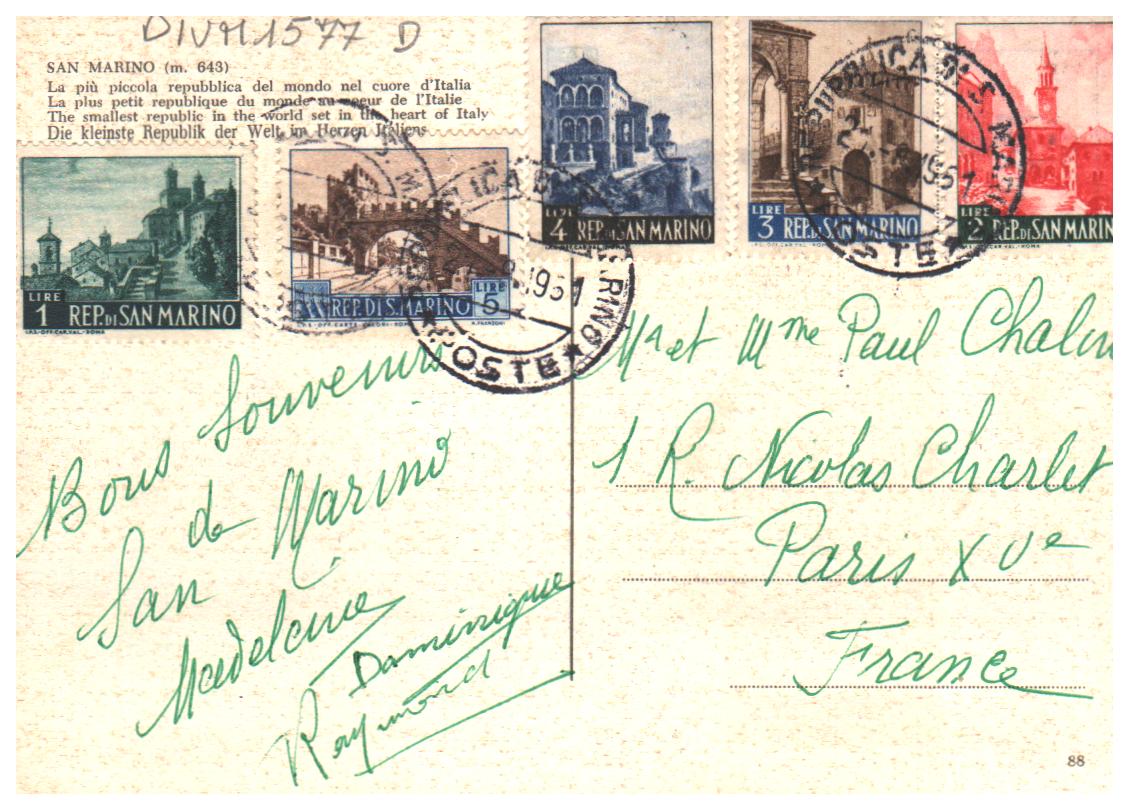 DIVM1577 D
SAN MARINO (m. 643)
La più piccola repubblica del mondo nel cuore d'Italia
La plus petit republique du monde au coeur de l'Italie
The smallest republic in the world set in the heart of Italy
Die kleinste Republik der Welt im Herzen Italiens
LIRE
1 REP. DI SAN MARINO
LIRE
5
REP. DI S. MARINO
LIRE
4 REP. DI SAN MARINO
LIRE
3 REP. DI SAN MARINO
LIRE
2 REP. DI SAN MARIN
POSTE
1951
REPUBBLICA DI S. MARINO
POSTE
1951
Bons Souvenirs
de
San Marino
Madeleine
Dominique
Raymond
Mr et Mme Paul
1 R. Nicolas Charlet
Paris XVe
France
88